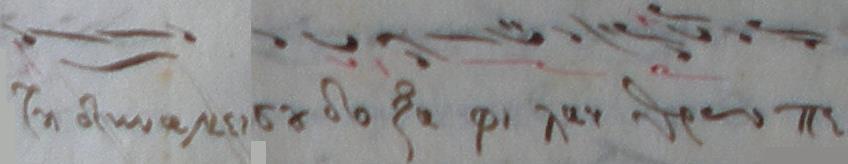 Τη δυναμει σου δο ξα φι λαν θρω πε